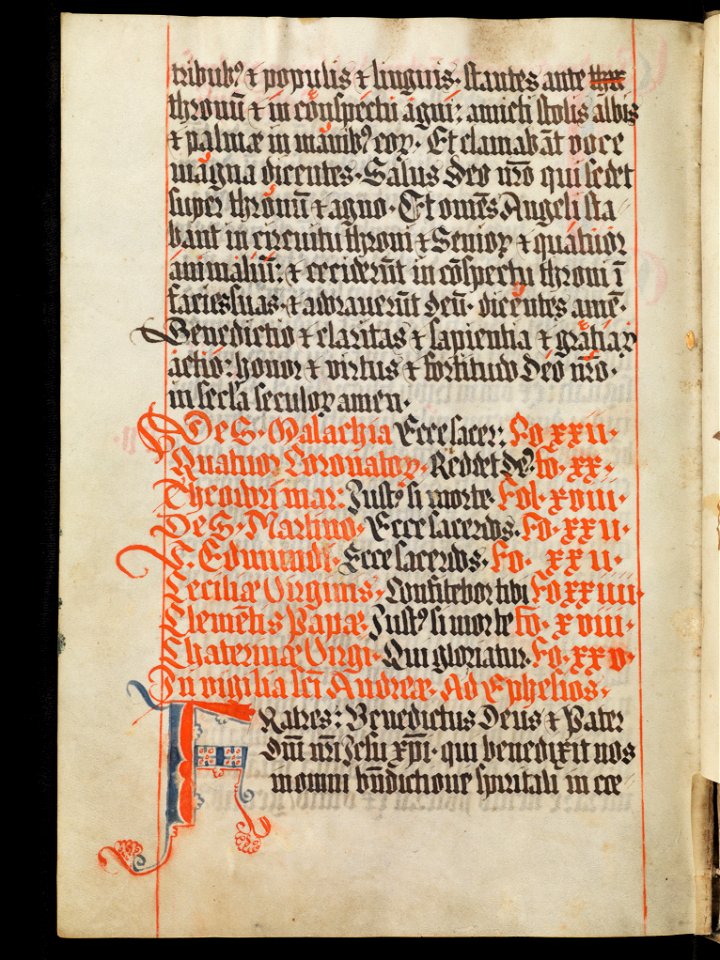 tribubꝰ ⁊ populis ⁊ linguis· stantes ante thro
thronū ⁊ in cōspectu agni: amicti stolis albis
⁊ palmæ in manibꝰ eoꝝ· Et clamabāt voce
magna dicentes· Salus Deo nr̄o qui sedet
super thronū ⁊ agno· Et omēs Angeli sta
bant in circuitu throni ⁊ Senioꝝ ⁊ quatuor
animaliū: ⁊ ceciderūt in cōspectu throni ī
facies suas· ⁊ adorauerūt deū· dicentes amē·
Benedictio ⁊ claritas ⁊ sapientia ⁊ gratiaꝝ
actio: honor ⁊ virtus ⁊ fortitudo Deo nr̄o·
in secl̄a seculoꝝ amen·
De S· Malachia Ecce sacer: Fo xxii·
Quatuor Coronatoꝝ· Reddet deꝰ fo· xx·
Theodori mar: Justꝰ si morte· Fol· xviii·
De S· Martino· Ecce sacerdos· Fo· xxii·
S· Edmundi· Ecce sacerdos· Fo· xxii·
Ceciliæ Virginis· Confitebor tibi Fo xxiiii·
Clemētis Papæ Justꝰ si morte fo· xviii·
Chaterinæ Virgi· Qui gloriatur· Fo· xxv·
In vigilia scī Andreæ· Ad Ephesios·
Fratres: Benedictus Deus ⁊ Pater
Dn̄i nr̄i Jesu xp̄i· qui benedixit nos
in omni bn̄dictione spiritali in cæ